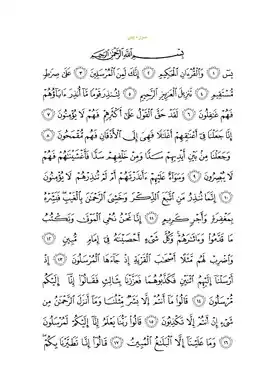 سورة يس
بِسْمِ ٱللَّهِ ٱلرَّحْمَٰنِ ٱلرَّحِيمِ
يسٓ ١ وَٱلْقُرْءَانِ ٱلْحَكِيمِ ٢ إِنَّكَ لَمِنَ ٱلْمُرْسَلِينَ ٣ عَلَىٰ صِرَٰطٍ
مُّسْتَقِيمٍ ٤ تَنزِيلَ ٱلْعَزِيزِ ٱلرَّحِيمِ ٥ لِتُنذِرَ قَوْمًا مَّآ أُنذِرَ ءَابَآؤُهُمْ
فَهُمْ غَٰفِلُونَ ٦ لَقَدْ حَقَّ ٱلْقَوْلُ عَلَىٰٓ أَكْثَرِهِمْ فَهُمْ لَا يُؤْمِنُونَ ٧
إِنَّا جَعَلْنَا فِىٓ أَعْنَٰقِهِمْ أَغْلَٰلًا فَهِىَ إِلَى ٱلْأَذْقَانِ فَهُم مُّقْمَحُونَ ٨
وَجَعَلْنَا مِنۢ بَيْنِ أَيْدِيهِمْ سَدًّا وَمِنْ خَلْفِهِمْ سَدًّا فَأَغْشَيْنَٰهُمْ فَهُمْ
لَا يُبْصِرُونَ ٩ وَسَوَآءٌ عَلَيْهِمْ ءَأَنذَرْتَهُمْ أَمْ لَمْ تُنذِرْهُمْ لَا يُؤْمِنُونَ
١٠ إِنَّمَا تُنذِرُ مَنِ ٱتَّبَعَ ٱلذِّكْرَ وَخَشِىَ ٱلرَّحْمَٰنَ بِٱلْغَيْبِ فَبَشِّرْهُ
بِمَغْفِرَةٍ وَأَجْرٍ كَرِيمٍ ١١ إِنَّا نَحْنُ نُحْىِ ٱلْمَوْتَىٰ وَنَكْتُبُ
مَا قَدَّمُوا۟ وَءَاثَٰرَهُمْ وَكُلَّ شَىْءٍ أَحْصَيْنَٰهُ فِىٓ إِمَامٍ مُّبِينٍ ١٢
وَٱضْرِبْ لَهُم مَّثَلًا أَصْحَٰبَ ٱلْقَرْيَةِ إِذْ جَآءَهَا ٱلْمُرْسَلُونَ ١٣ إِذْ
أَرْسَلْنَآ إِلَيْهِمُ ٱثْنَيْنِ فَكَذَّبُوهُمَا فَعَزَّزْنَا بِثَالِثٍ فَقَالُوٓا۟ إِنَّآ إِلَيْكُم
مُّرْسَلُونَ ١٤ قَالُوا۟ مَآ أَنتُمْ إِلَّا بَشَرٌ مِّثْلُنَا وَمَآ أَنزَلَ ٱلرَّحْمَٰنُ مِن
شَىْءٍ إِنْ أَنتُمْ إِلَّا تَكْذِبُونَ ١٥ قَالُوا۟ رَبُّنَا يَعْلَمُ إِنَّآ إِلَيْكُمْ لَمُرْسَلُونَ
١٦ وَمَا عَلَيْنَآ إِلَّا ٱلْبَلَٰغُ ٱلْمُبِينُ ١٧ قَالُوٓا۟ إِنَّا تَطَيَّرْنَا بِكُمْ